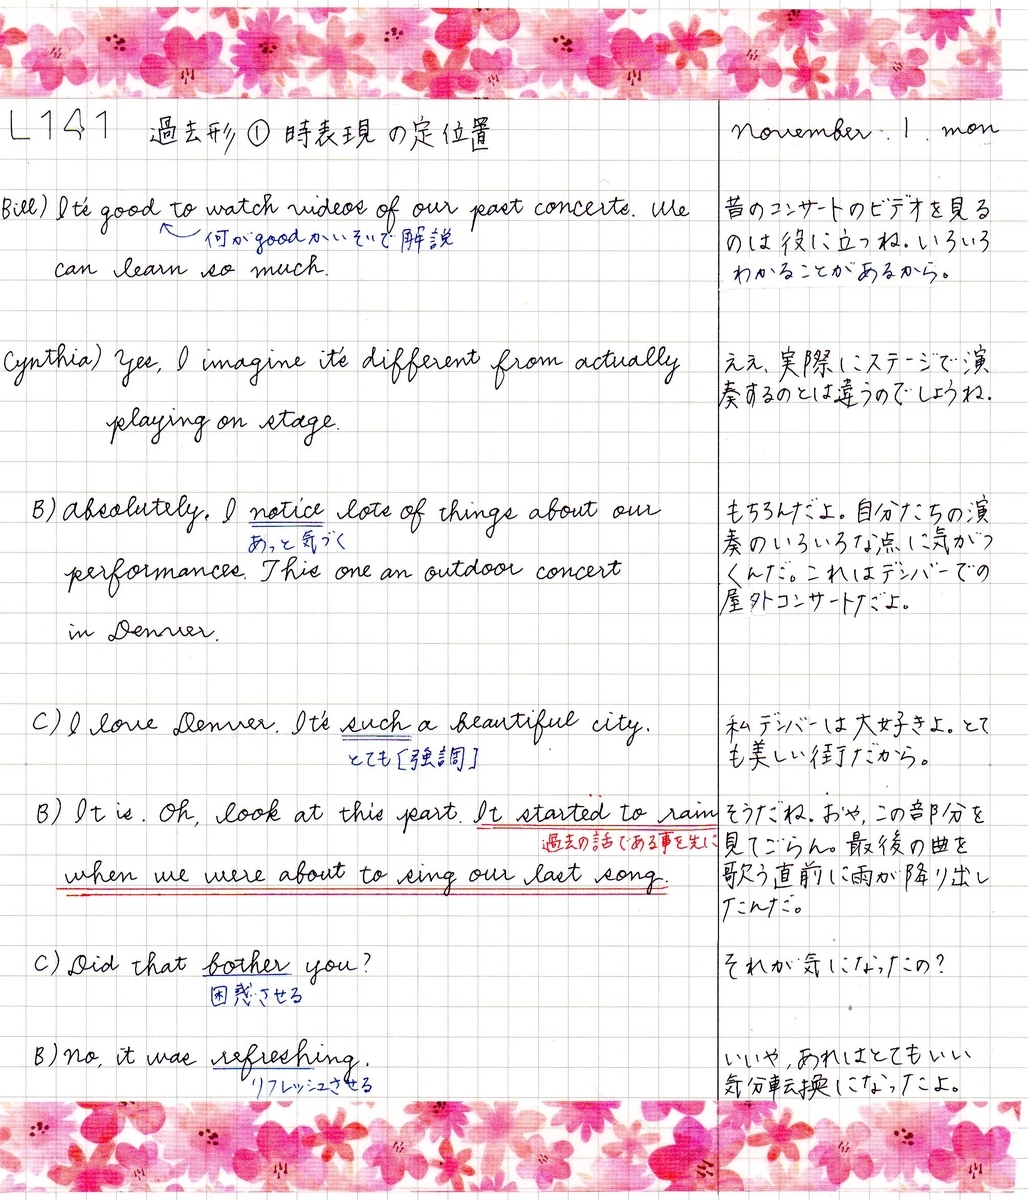 L141 過去形 ① 時表現の定位置
november. 1. mon
Bill) It's good to watch videos of our past concerts. We
何がgoodかいそいで解説
can learn so much.
昔のコンサートのビデオを見る
のは役に立つね。いろいろ
わかることがあるから。
Cynthia) Yes, I imagine it's different from actually
playing on stage.
ええ、実際にステージで演
奏するのとは違うのでしょうね.
B) Absolutely. I notice lots of things about our
あっと気づく
performances. This one an outdoor concert
in Denver.
もちろんだよ。自分たちの演
奏のいろいろな点に気がつ
くんだ。これはデンバーでの
屋外コンサートだよ。
C) I love Denver. It's such a beautiful city.
とても[強調]
私デンバーは大好きよ。とて
も美しい街だから。
B) It is. Oh, look at this part. It started to rain
過去の話である事を先に
when we were about to sing our last song.
そうだね。おや,この部分を
見てごらん。最後の曲を
歌う直前に雨が降り出し
たんだ。
C) Did that bother you?
困惑させる
それが気になったの?
B) No, it was refreshing.
リフレッシュさせる
いいや,あれはとてもいい
気分転換になったよ。